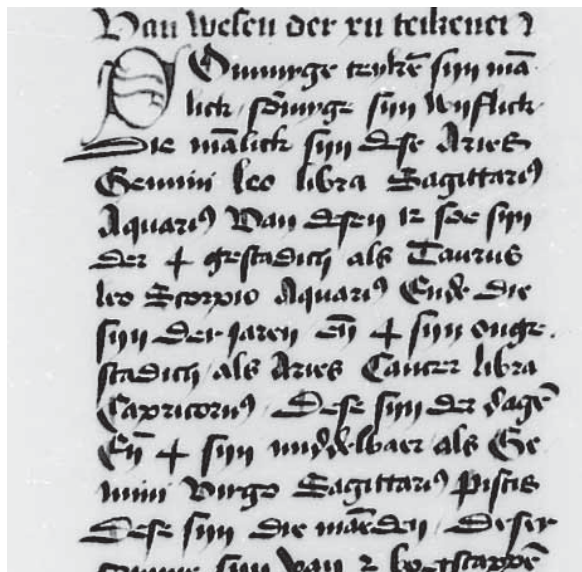 Van wesen der xii teikenen
Somyge teykē syn mā
lick somyge syn wyflick
Die mālick syn dese Aries
Gemini leo libra Sagittariꝰ
Aquariꝰ Van desen 12 soe syn
der 4 gestadich als Taurus
leo Scorpio Aquariꝰ Ende die
syn der jaren eñ 4 syn onge
stadich als Aries Cancer libra
Capricornꝰ Dese syn der dagē
Eñ 4 syn myddelbaer als Ge
mini Virgo Sagittariꝰ Piscis
Dese syn die māeden Deser
syn van 2